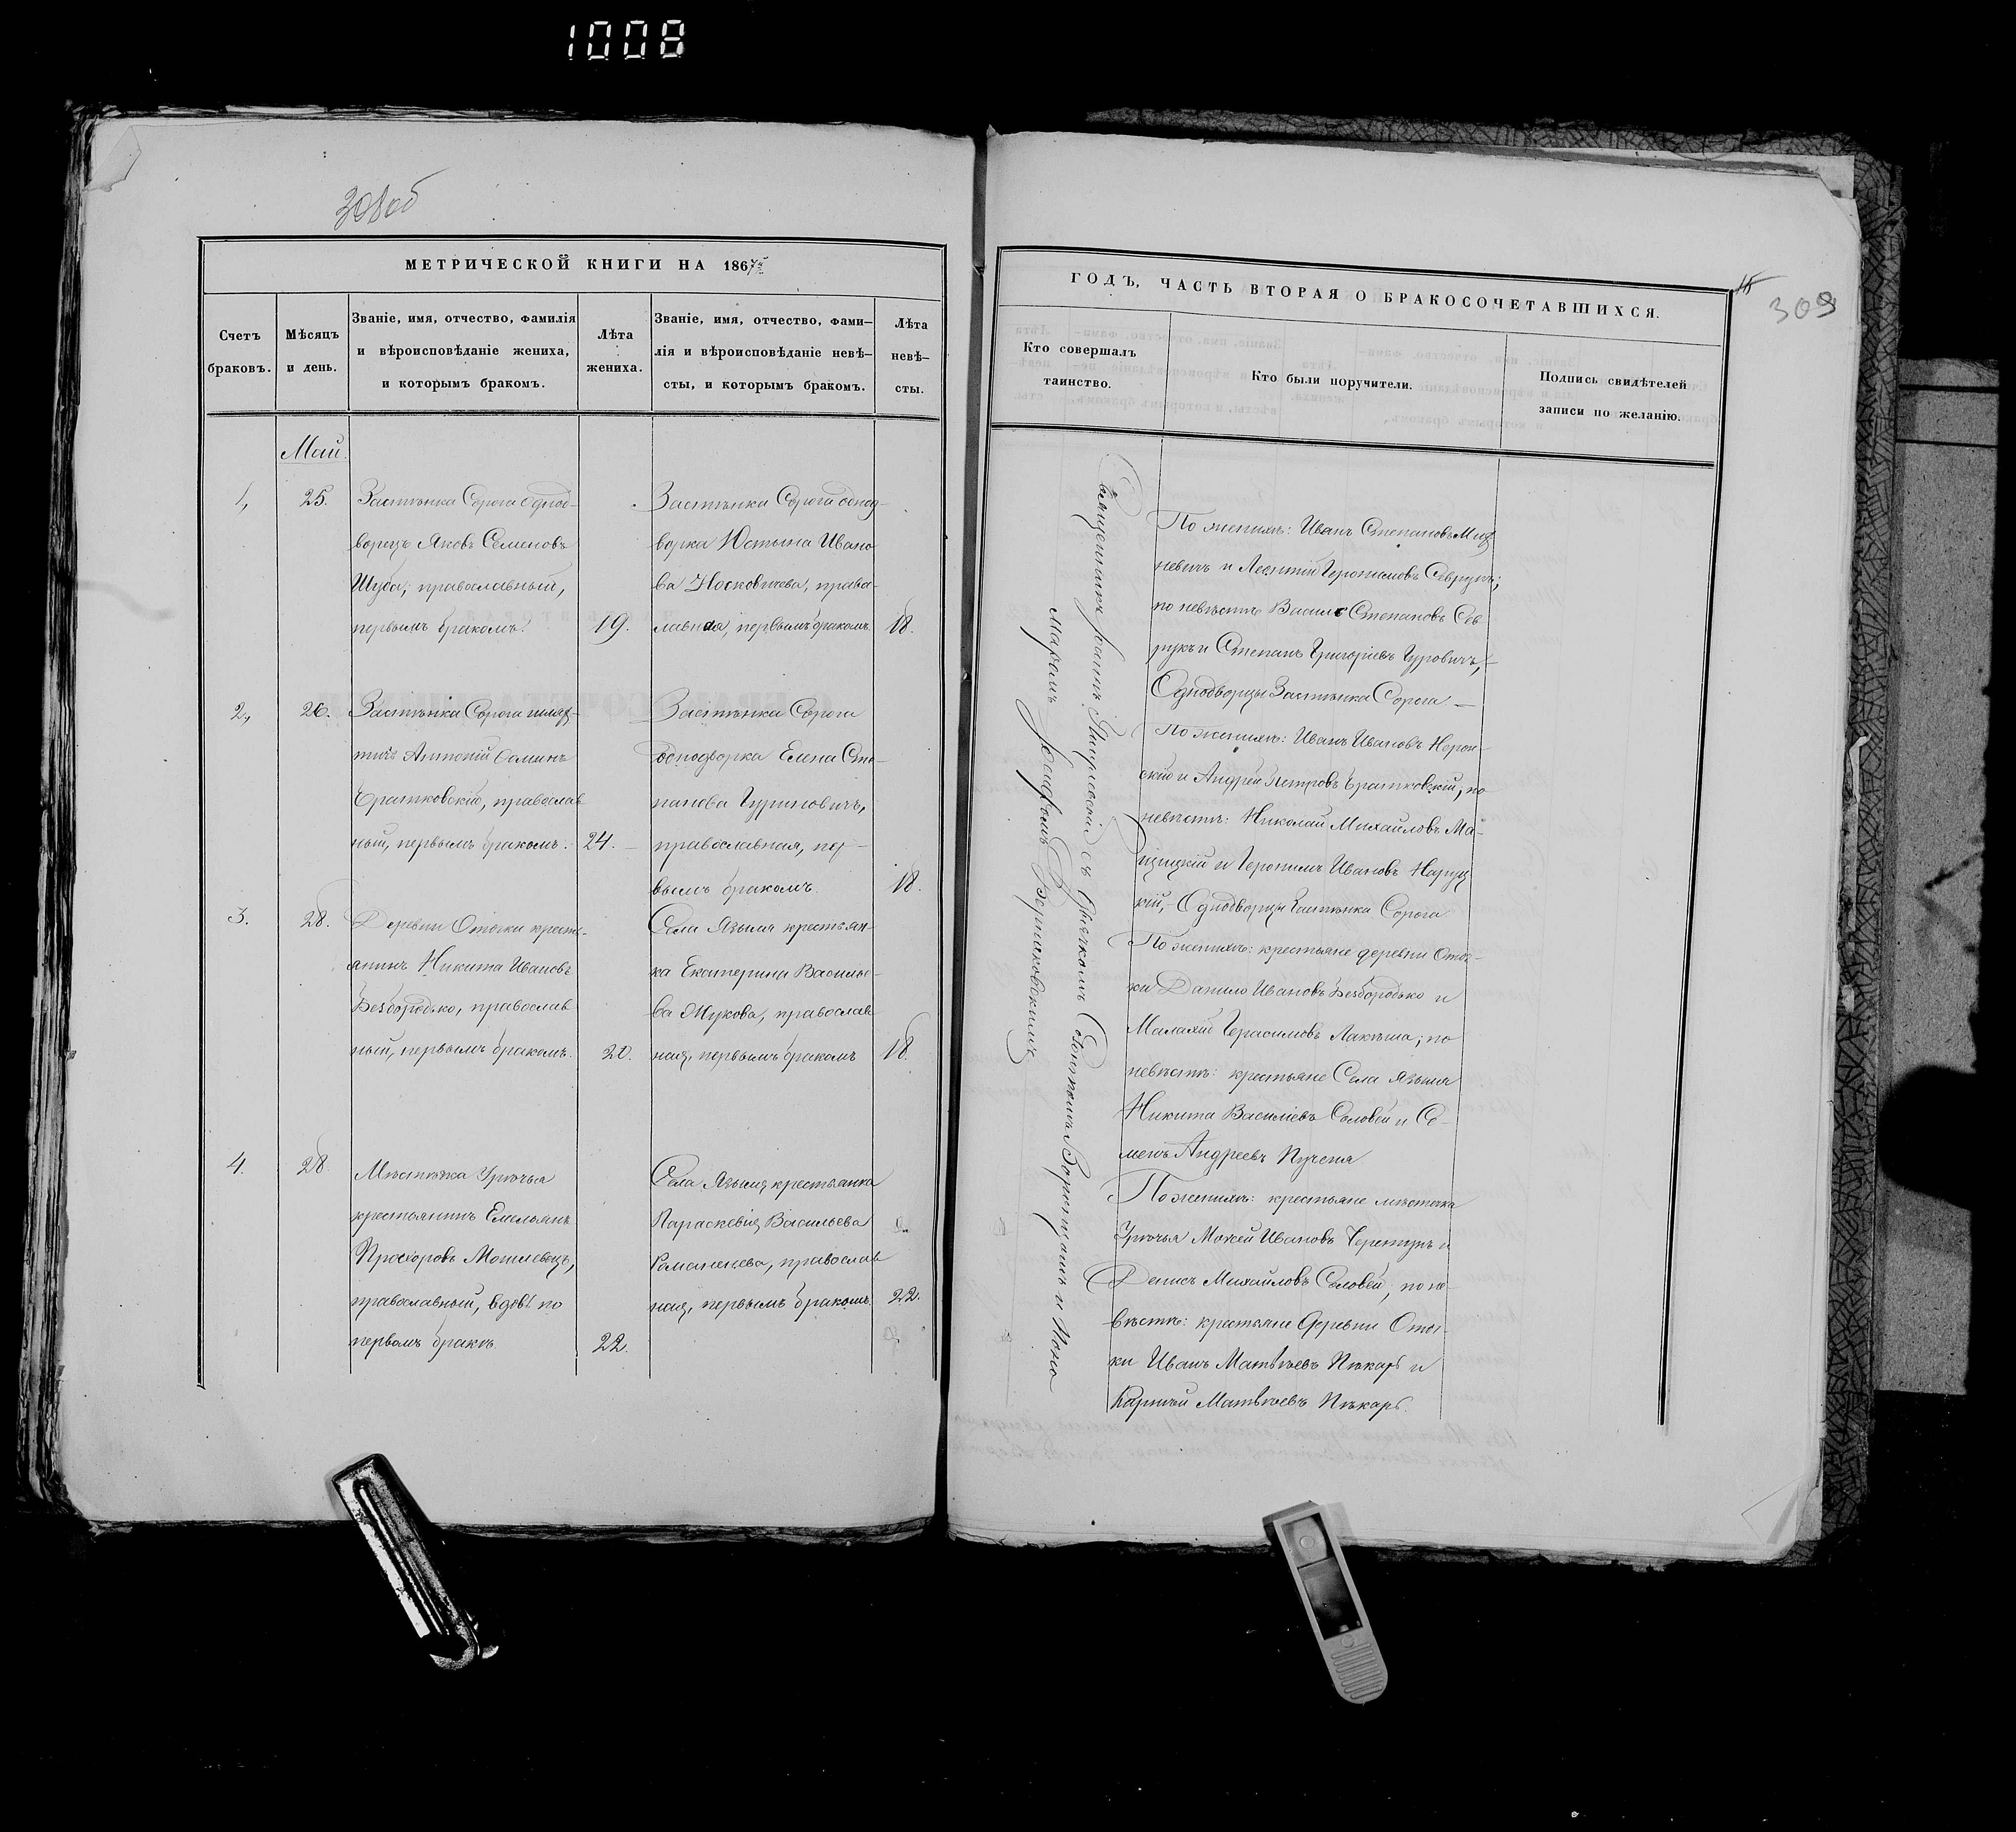 1008
308об
МЕТРИЧЕСКОЙ КНИГИ НА 1867й
Счетъ браковъ.
Мѣсяцъ и день.
Званіе, имя, отчество, фамилія
и вѣроисповѣданіе жениха,
и которымъ бракомъ.
Лѣта
жениха.
Званіе, имя, отчество, фами-
лія и вѣроисповѣданіе невѣ-
сты, и которымъ бракомъ.
Лѣта
невѣ-
сты.
Май.
1, 25.
Застѣнка Сорога однод-
ворецъ Яковъ Семеновъ
Шуба, православный,
первымъ бракомъ.
19.
Застѣнка Сорога однод-
ворка Юстына Ивано
ва Носковичева, право-
лавная, первымъ бракомъ
18.
2, 26.
Застѣнка Сорога шлях-
тичъ Антоній
Братковскій, православ
ный, первымъ бракомъ.
24.
Застѣнка Сорога
однодворка Елена Сте-
панова Гуриновичъ,
православная, пер-
вымъ бракомъ.
18.
3. 28.
Деревни Оточки кресть-
янинъ Никита Ивановъ
Безбородько, православ
ный, первымъ бракомъ.
20.
Села Языля крестьян-
ка Екатерина Василье-
ва Жукова, православ
ная, первымъ бракомъ
18.
4. 28.
Мѣстечка Уречья
крестьянинъ Емельянъ
Прохоровъ Могилевецъ,
православный, вдовъ по
первомъ бракѣ.
22.
Села Языля крестьянка
Параскевія Васильева
Романенева, православ
ная, первымъ бракомъ.
22.
15
309
ГОДЪ, ЧАСТЬ ВТОРАЯ О БРАКОСОЧЕТАВШИХСЯ.
Кто совершалъ
таинство.
Кто были поручители.
Подпись свидѣтелей
записи по желанію.
Священникъ Іоаннъ съ дьячкомъ и Поно
маремъ Іосифомъ Верниковскимъ
По женихѣ: Иванъ Степановъ
невичъ и Леонтій Іеронимовъ Севрукъ;
по невѣстѣ Василь Степановъ Сев
рукъ и Степанъ Григоріевъ Гуровичъ,
Однодворцы Застѣнка Сорога.
По женихѣ: Иванъ Ивановъ Нерон-
скій и Андрей Петровъ Братковскій, по
невѣстѣ: Николай Михайловъ Ма-
рцицкій и Іеронимъ Ивановъ Наруц
кій, Однодворцы Застѣнка Сорога
По женихѣ: крестьяне деревни Оточ-
ки Данило Ивановъ Безбородько и
Малахій Герасимовъ Лакѣша; по
невѣстѣ: крестьяне Села Языля
Никита Василіевъ Соловей и Се-
менъ Андреевъ Пученя
По женихѣ: крестьяне мѣстечка
Уречья Мокей Ивановъ и
Денисъ Михайловъ Соловей, по не-
вѣстѣ: крестьяне Деревни Оточ-
ки Иванъ Матвѣевъ Пѣкарь и
Карпѣй Матвѣевъ Пѣкарь.